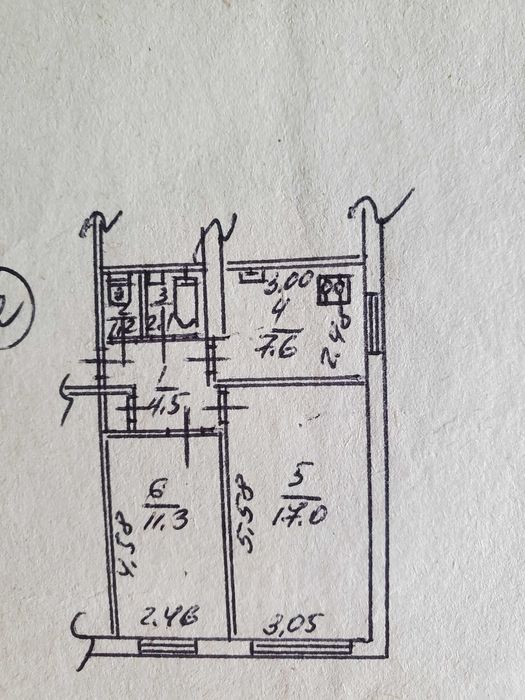 3,00
2
1.2
3
2.1
4
7.6
2.48
1
4.5
6
11.3
4.58
5
17.0
5.58
2.46
3,05